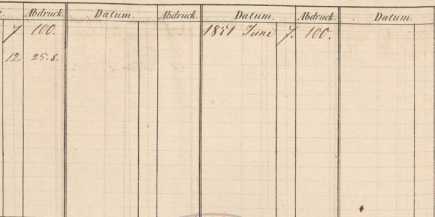 Abdruck. Datum. Abdruck. Datum. Abdruck. Datum.
7 100. 1851 June 7. 100.
12 25.